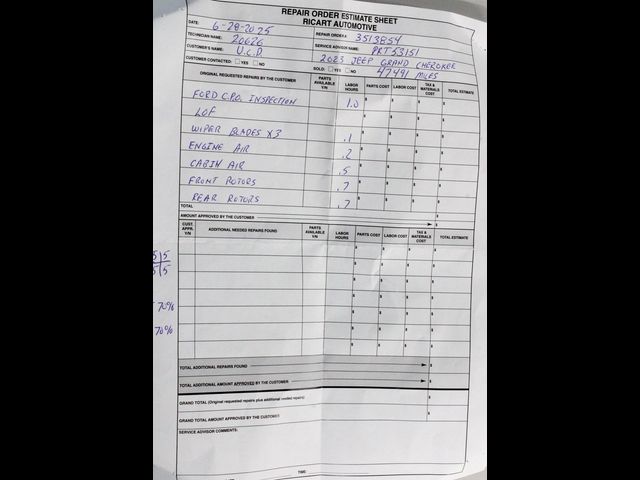 REPAIR ORDER ESTIMATE SHEET
RICART AUTOMOTIVE
DATE: 6-28-2025
REPAIR ORDER#: 3513854
TECHNICIAN NAME: 20626
SERVICE ADVISOR NAME: PRT53151
CUSTOMER'S NAME: U.C.D.
2023 JEEP GRAND CHEROKEE
CUSTOMER CONTACTED: YES NO
SOLD: YES NO 47491 MILES
ORIGINAL REQUESTED REPAIRS BY THE CUSTOMER PARTS AVAILABLE Y/N LABOR HOURS PARTS COST LABOR COST TAX & MATERIALS COST TOTAL ESTIMATE
FORD C.P.O. INSPECTION 1.0 $ $ $ $
LOF $ $ $ $
WIPER BLADES X3 .1 $ $ $ $
ENGINE AIR .2 $ $ $ $
CABIN AIR .5 $ $ $ $
FRONT ROTORS .7 $ $ $ $
REAR ROTORS .7 $ $ $ $
TOTAL $
AMOUNT APPROVED BY THE CUSTOMER $
CUST. APPR. Y/N ADDITIONAL NEEDED REPAIRS FOUND PARTS AVAILABLE Y/N LABOR HOURS PARTS COST LABOR COST TAX & MATERIALS COST TOTAL ESTIMATE
$ $ $ $
5|5 $ $ $ $
5|5 $ $ $ $
70% $ $ $ $
70% $ $ $ $
$ $ $ $
TOTAL ADDITIONAL REPAIRS FOUND $
TOTAL ADDITIONAL AMOUNT APPROVED BY THE CUSTOMER $
GRAND TOTAL (Original requested repairs plus additional needed repairs) $
GRAND TOTAL AMOUNT APPROVED BY THE CUSTOMER $
SERVICE ADVISOR COMMENTS: